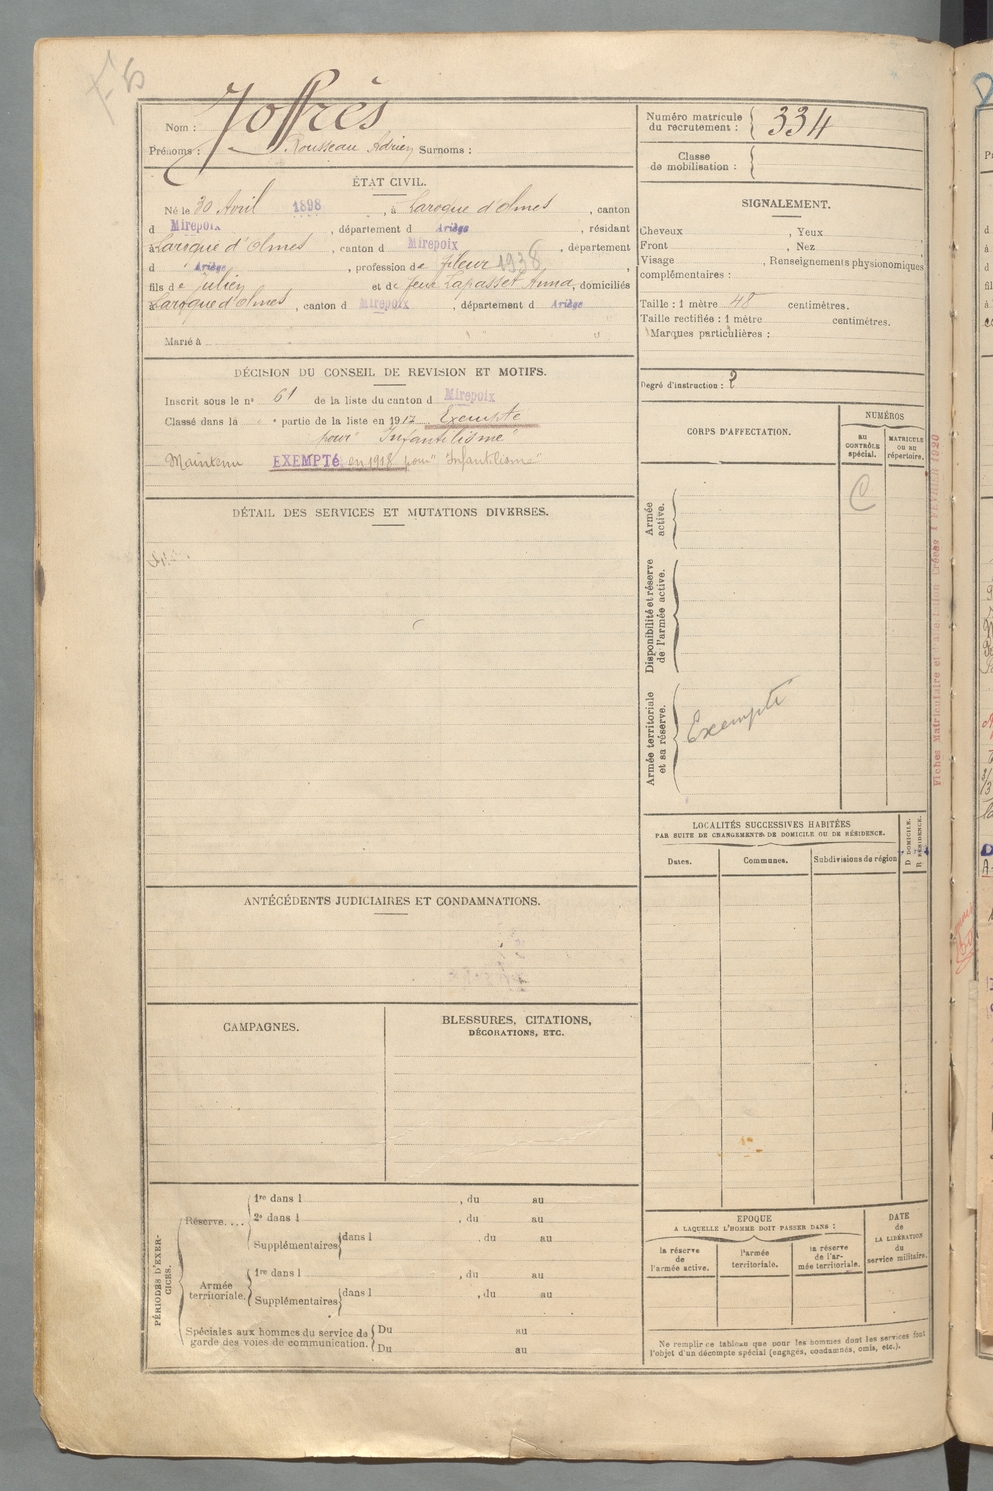 F 6
Nom : Joffrès
Prénoms : Rousseau Adrien Surnoms :
Numéro matricule
du recrutement : 334
Classe
de mobilisation :
ÉTAT CIVIL.
Né le 30 Avril 1898, à Laroque d'Olmes, canton
d Mirepoix, département d Ariège, résidant
à Laroque d'Olmes, canton d Mirepoix, département
d Ariège, profession de fileur 1938,
fils de Julien et de feue Lapasset Anna, domiciliés
à Laroque d'Olmes, canton d Mirepoix, département d Ariège
Marié à
SIGNALEMENT.
Cheveux , Yeux
Front , Nez
Visage , Renseignements physionomiques
complémentaires :
Taille : 1 mètre 48 centimètres.
Taille rectifiée : 1 mètre centimètres.
Marques particulières :
Degré d'instruction : 2
DÉCISION DU CONSEIL DE REVISION ET MOTIFS.
Inscrit sous le nº 61 de la liste du canton d Mirepoix
Classé dans la e partie de la liste en 1917. Exempté
pour "Infantilisme"
Maintenu EXEMPTé en 1918 pour "Infantilisme"
DÉTAIL DES SERVICES ET MUTATIONS DIVERSES.
CORPS D'AFFECTATION.
NUMÉROS
AU
CONTRÔLE
spécial.
MATRICULE
OU AU
répertoire.
Armée
active.
C
Disponibilité et réserve
de l'armée active.
Armée territoriale
et sa réserve.
Exempté
LOCALITÉS SUCCESSIVES HABITÉES
PAR SUITE DE CHANGEMENTS DE DOMICILE OU DE RÉSIDENCE.
Dates.
Communes.
Subdivisions de région
D DOMICILE.
R RÉSIDENCE.
ANTÉCÉDENTS JUDICIAIRES ET CONDAMNATIONS.
CAMPAGNES.
BLESSURES, CITATIONS,
DÉCORATIONS, ETC.
PÉRIODES D'EXER-
CICES.
Réserve....
1re dans l , du au
2e dans l , du au
Supplémentaires dans l , du au
Armée
territoriale.
1re dans l , du au
Supplémentaires dans l , du au
Spéciales aux hommes du service de
garde des voies de communication.
Du au
Du au
EPOQUE
A LAQUELLE L'HOMME DOIT PASSER DANS :
la réserve
de
l'armée active.
l'armée
territoriale.
la réserve
de l'ar-
mée territoriale.
DATE
de
LA LIBÉRATION
du
service militaire.
Ne remplir ce tableau que pour les hommes dont les services font
l'objet d'un décompte spécial (engagés, condamnés, omis, etc.).